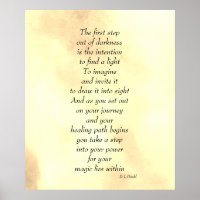 The first step
out of darkness
is the intention
to find a light
To imagine
and invite it
to draw it into sight
And as you set out
on your journey
and your
healing path begins
you take a step
into your power
for your
magic lies within